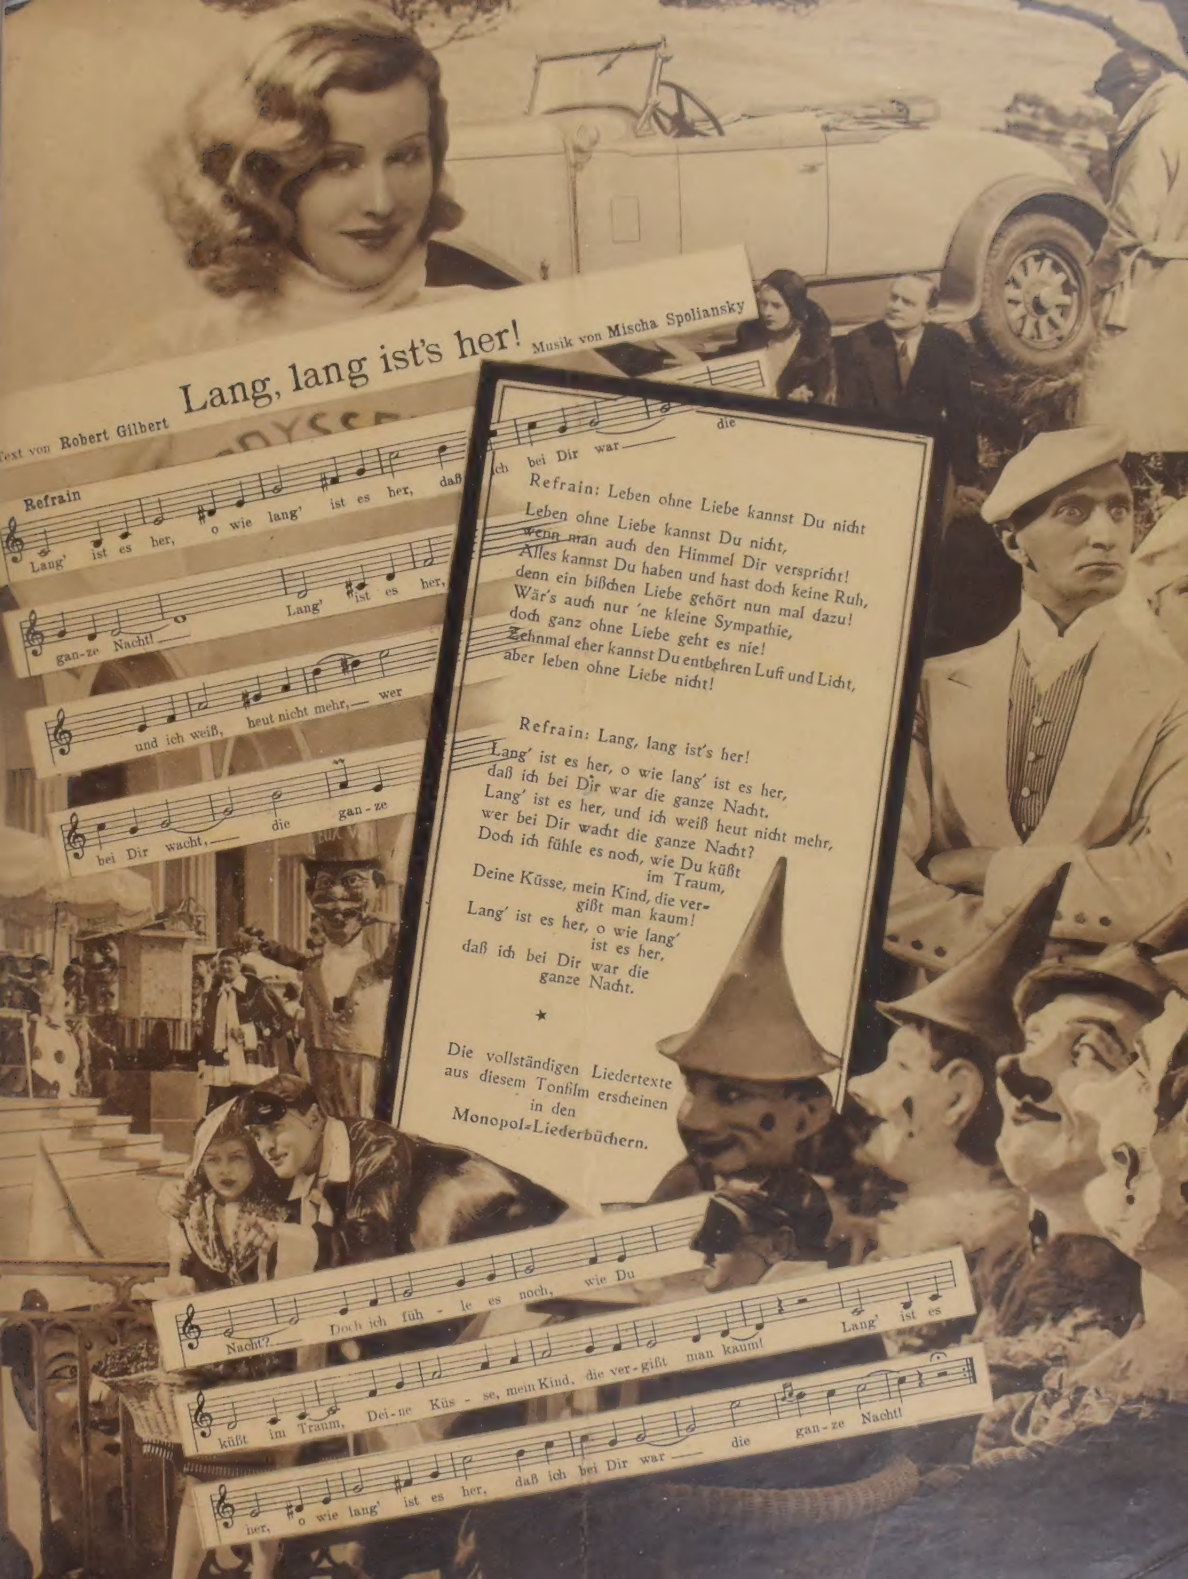 Lang, lang ist's her!
Text von Robert Gilbert
Musik von Mischa Spoliansky
Refrain
Lang' ist es her, o wie lang' ist es her, daß ich bei Dir war die
gan-ze Nacht! Lang' ist es her,
und ich weiß, heut nicht mehr, wer
bei Dir wacht, die gan-ze
Refrain: Leben ohne Liebe kannst Du nicht
Leben ohne Liebe kannst Du nicht,
wenn man auch den Himmel Dir verspricht!
Alles kannst Du haben und hast doch keine Ruh,
denn ein bißchen Liebe gehört nun mal dazu!
Wär's auch nur 'ne kleine Sympathie,
doch ganz ohne Liebe geht es nie!
Zehnmal eher kannst Du entbehren Luft und Licht,
aber leben ohne Liebe nicht!
Refrain: Lang, lang ist's her!
Lang' ist es her, o wie lang' ist es her,
daß ich bei Dir war die ganze Nacht.
Lang' ist es her, und ich weiß heut nicht mehr,
wer bei Dir wacht die ganze Nacht?
Doch ich fühle es noch, wie Du küßt
im Traum,
Deine Küsse, mein Kind, die ver-
gißt man kaum!
Lang' ist es her, o wie lang'
ist es her,
daß ich bei Dir war die
ganze Nacht.
Die vollständigen Liedertexte
aus diesem Tonfilm erscheinen
in den
Monopol-Liederbüchern.
Nacht? Doch ich füh - le es noch, wie Du
küßt im Traum, Dei-ne Küs - se, mein Kind, die ver-gißt man kaum! Lang' ist es
her, o wie lang' ist es her, daß ich bei Dir war die gan-ze Nacht!